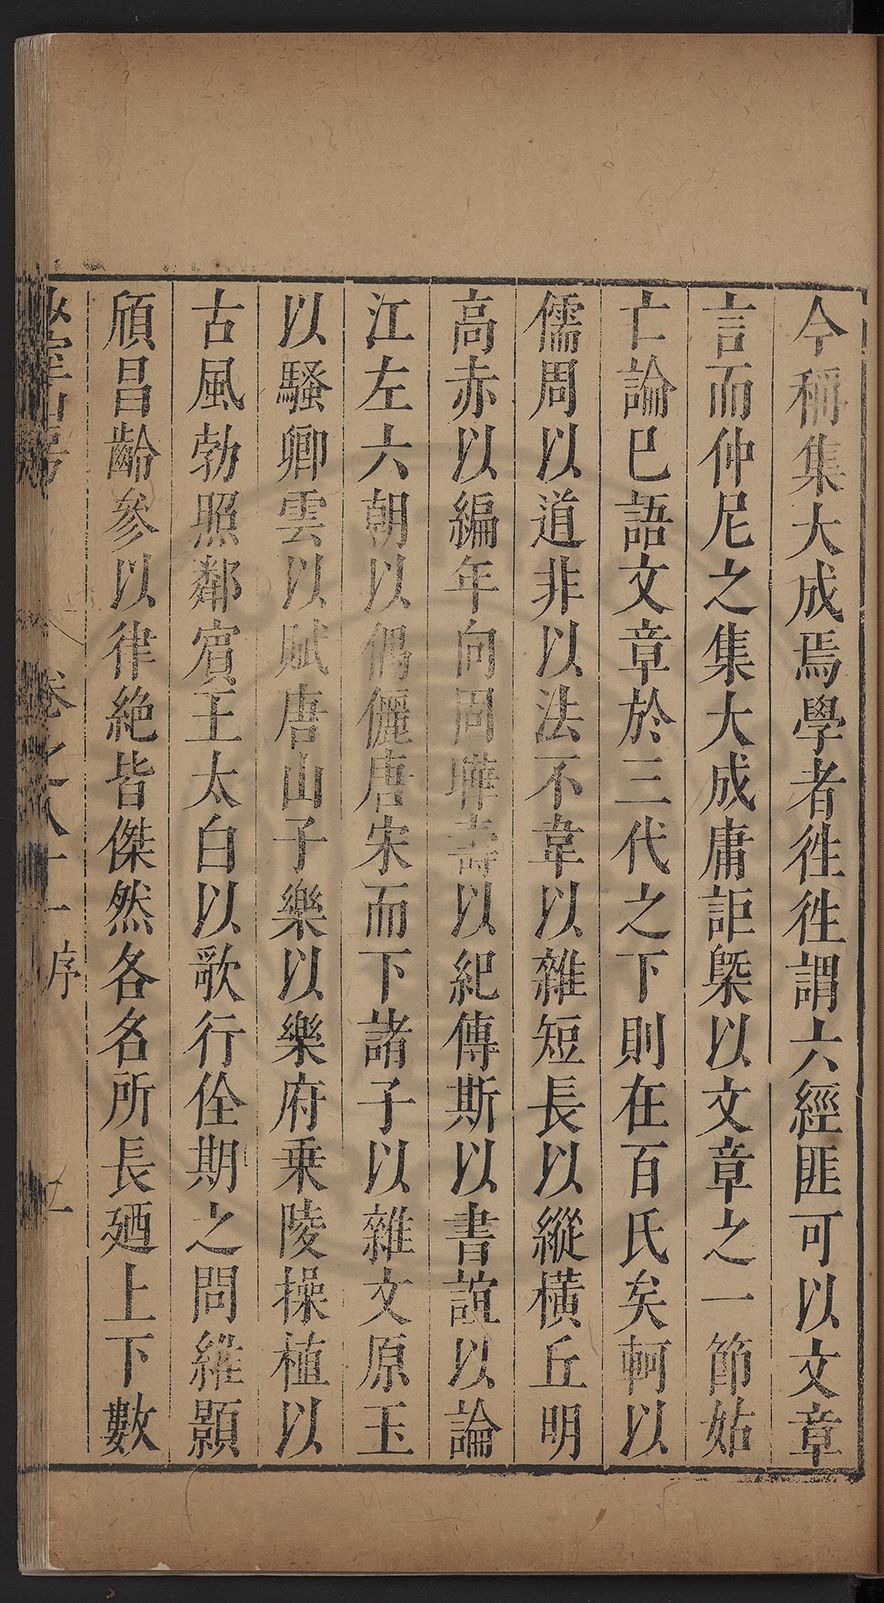 今稱集大成焉學者徃徃謂六經匪可以文章
言而仲尼之集大成庸詎槩以文章之一節姑
亡論已語文章於三代之下則在百氏矣軻以
儒周以道非以法不韋以雜短長以縱橫丘明
高赤以編年向固曄壽以紀傳斯以書誼以論
江左六朝以偶儷唐宋而下諸子以雜文原玉
以騷卿雲以賦唐山子樂以樂府乗陵操植以
古風勃照鄰賓王太白以歌行佺期之問維顥
頎昌齡參以律絶皆傑然各名所長廼上下數
卷之八十一 序